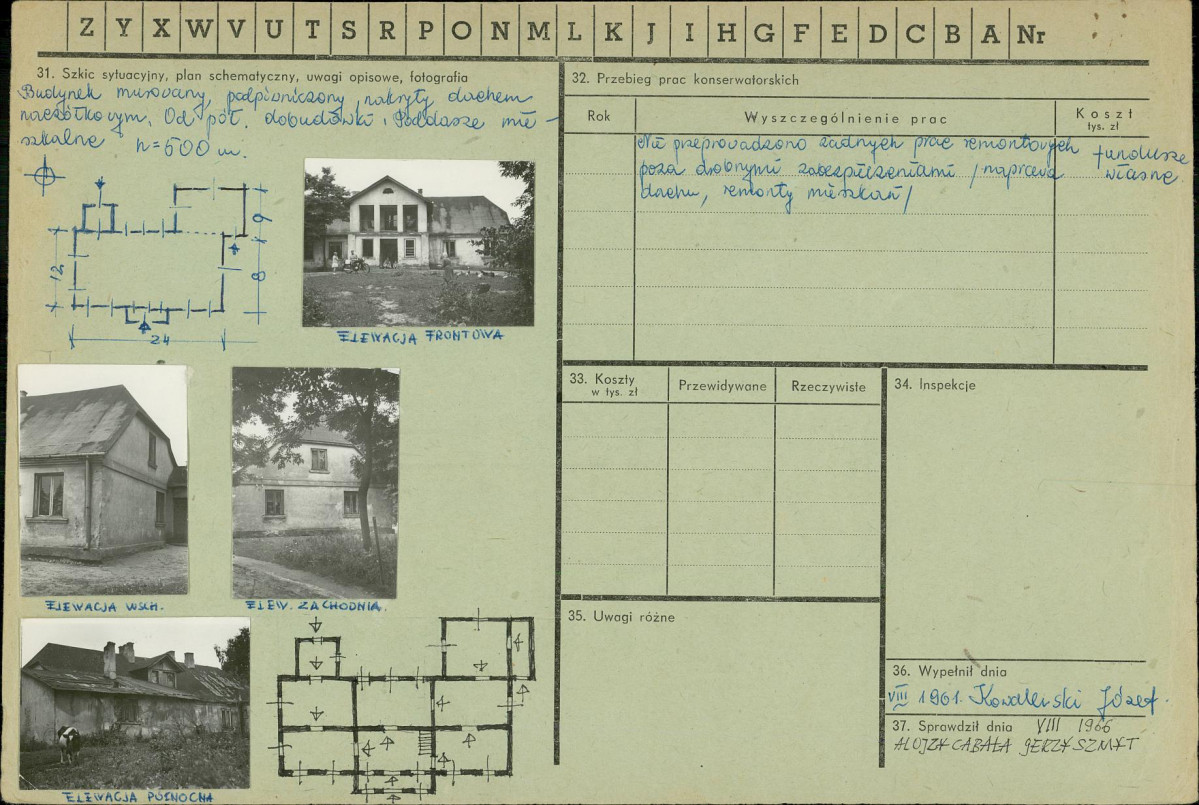 Z Y X W V U T S R P O N M L K J I H G F E D C B A Nr
31. Szkic sytuacyjny, plan schematyczny, uwagi opisowe, fotografia
Budynek murowany, podpiwniczony, nakryty dachem
naczółkowym. Od półt. dobudówki. Poddasze mie-
szkalne h=500 m.
12
24
9
8
ELEWACJA FRONTOWA
ELEWACJA WSCH.
ELEW. ZACHODNIA.
ELEWACJA PÓŁNOCNA
32. Przebieg prac konserwatorskich
Rok
Wyszczególnienie prac
Koszt
tys. zł
Nie przeprowadzono żadnych prac remontowych
poza drobnymi zabezpieczeniami /naprawa
dachu, remonty mieszkań/
fundusze
własne.
33. Koszty
w tys. zł
Przewidywane
Rzeczywiste
34. Inspekcje
35. Uwagi różne
36. Wypełnił dnia
VIII 1961. Kowalerski Józef.
37. Sprawdził dnia VIII 1966
ALOJZY CABAŁA JERZY SZMYT